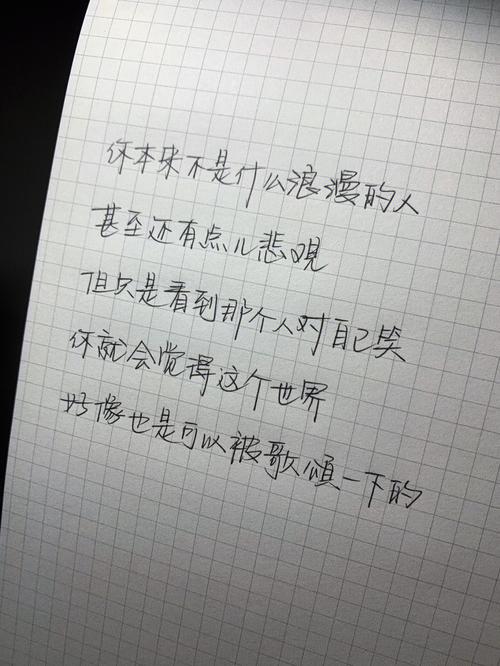 你本来不是什么浪漫的人
甚至还有点儿悲观
但只是看到那个人对自己笑
你就会觉得这个世界
好像也是可以被歌颂一下的